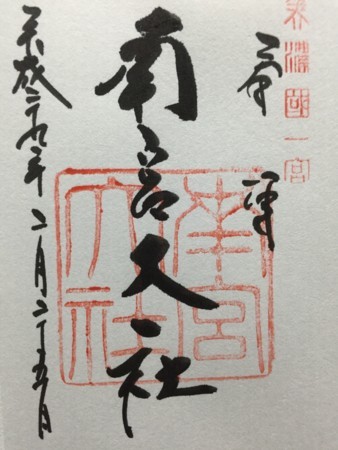 美濃國一宮
奉拝
南宮大社
南宮大社
平成二十九年二月二十五日